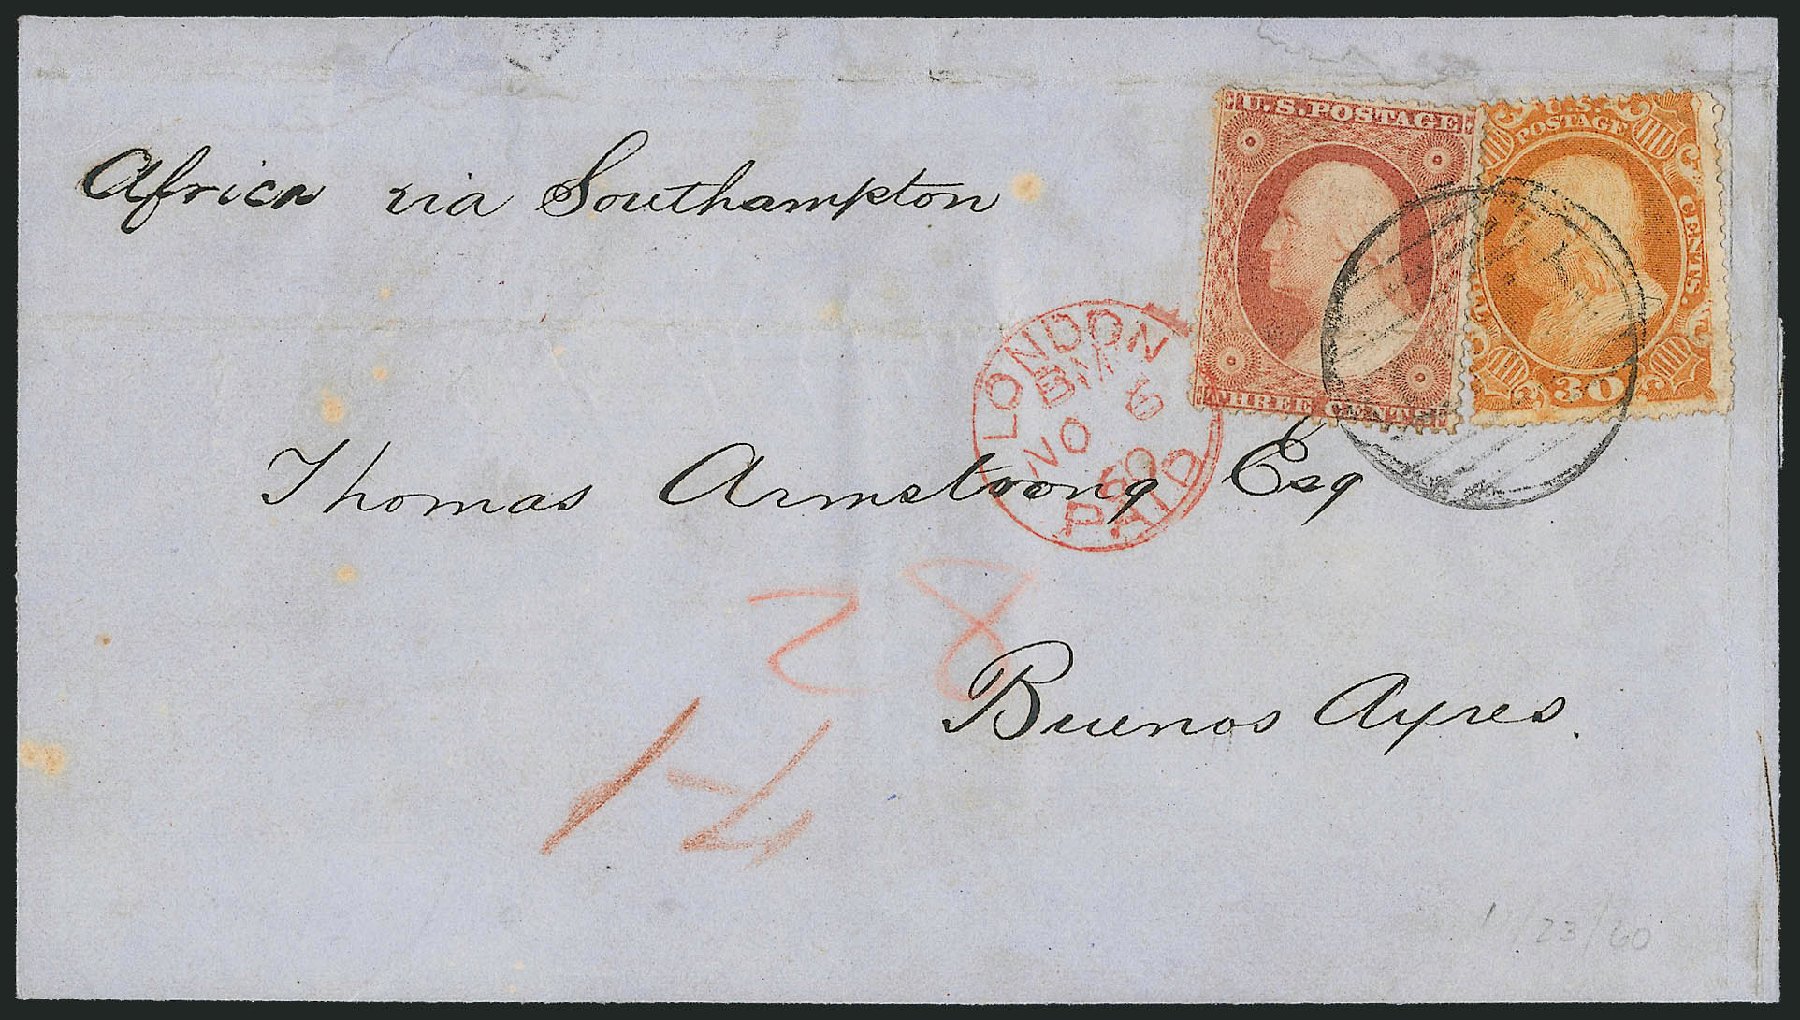 Africa via Southampton
U.S. POSTAGE
THREE CENTS
U.S.
POSTAGE
CENTS.
30
LONDON
BM
6
NO
60
PAID
Thomas Armstrong Esq
28
Buenos Ayres.
1/23/60